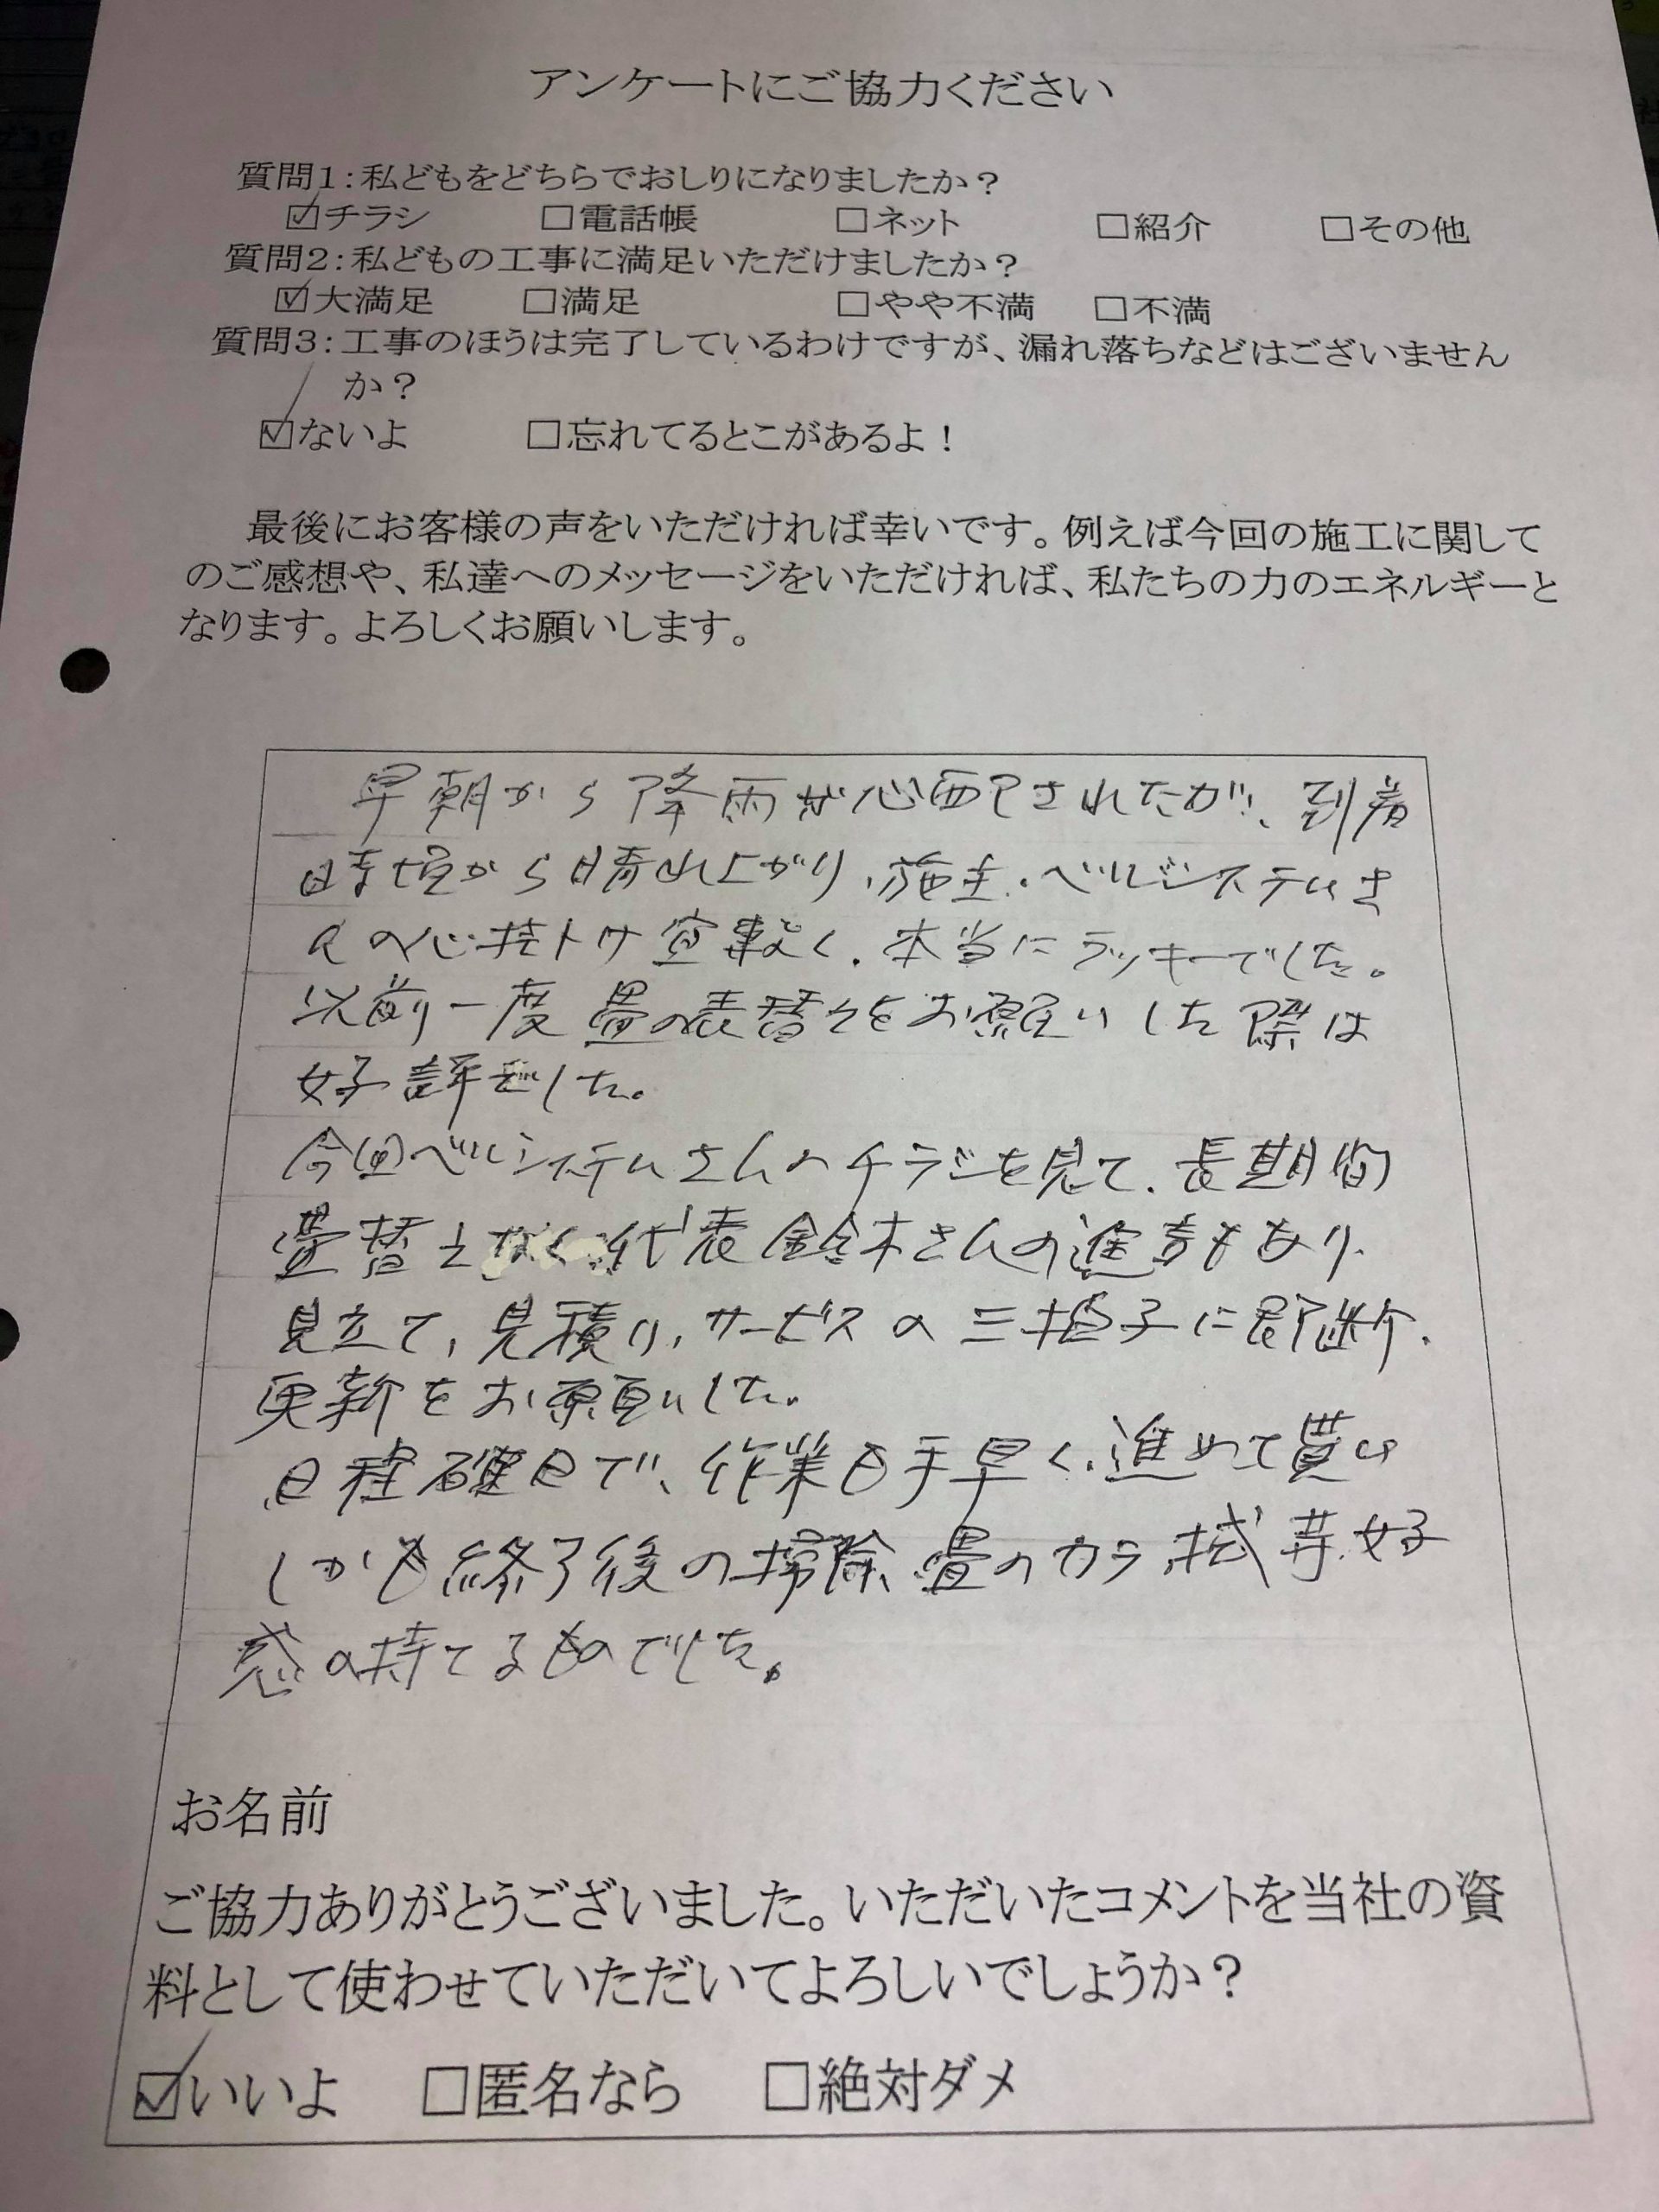 アンケートにご協力ください
質問1:私どもをどちらでおしりになりましたか?
☑チラシ □電話帳 □ネット □紹介 □その他
質問2:私どもの工事に満足いただけましたか?
☑大満足 □満足 □やや不満 □不満
質問3:工事のほうは完了しているわけですが、漏れ落ちなどはございません
か?
☑ないよ □忘れてるとこがあるよ!
最後にお客様の声をいただければ幸いです。例えば今回の施工に関して
のご感想や、私達へのメッセージをいただければ、私たちの力のエネルギーと
なります。よろしくお願いします。
早朝から降雨が心配されたが、到着
時頃から晴れ上がり、施主・ベルシステムさ
んの心持 く、本当にラッキーでした。
以前一度畳の表替えをお願いした際は
好評でした。
今回ベルシステムさんのチラシを見て、長期間
畳替えなく、代表鈴木さんの進言もあり、
見立て、見積り、サービスの三拍子に即断、
更新をお願いした。
日程確 で、作業も手早く、進めて貰い
しかも終了後の掃除、畳のカラ拭等、好
感の持てるものでした。
お名前
ご協力ありがとうございました。いただいたコメントを当社の資
料として使わせていただいてよろしいでしょうか?
☑いいよ □匿名なら □絶対ダメ